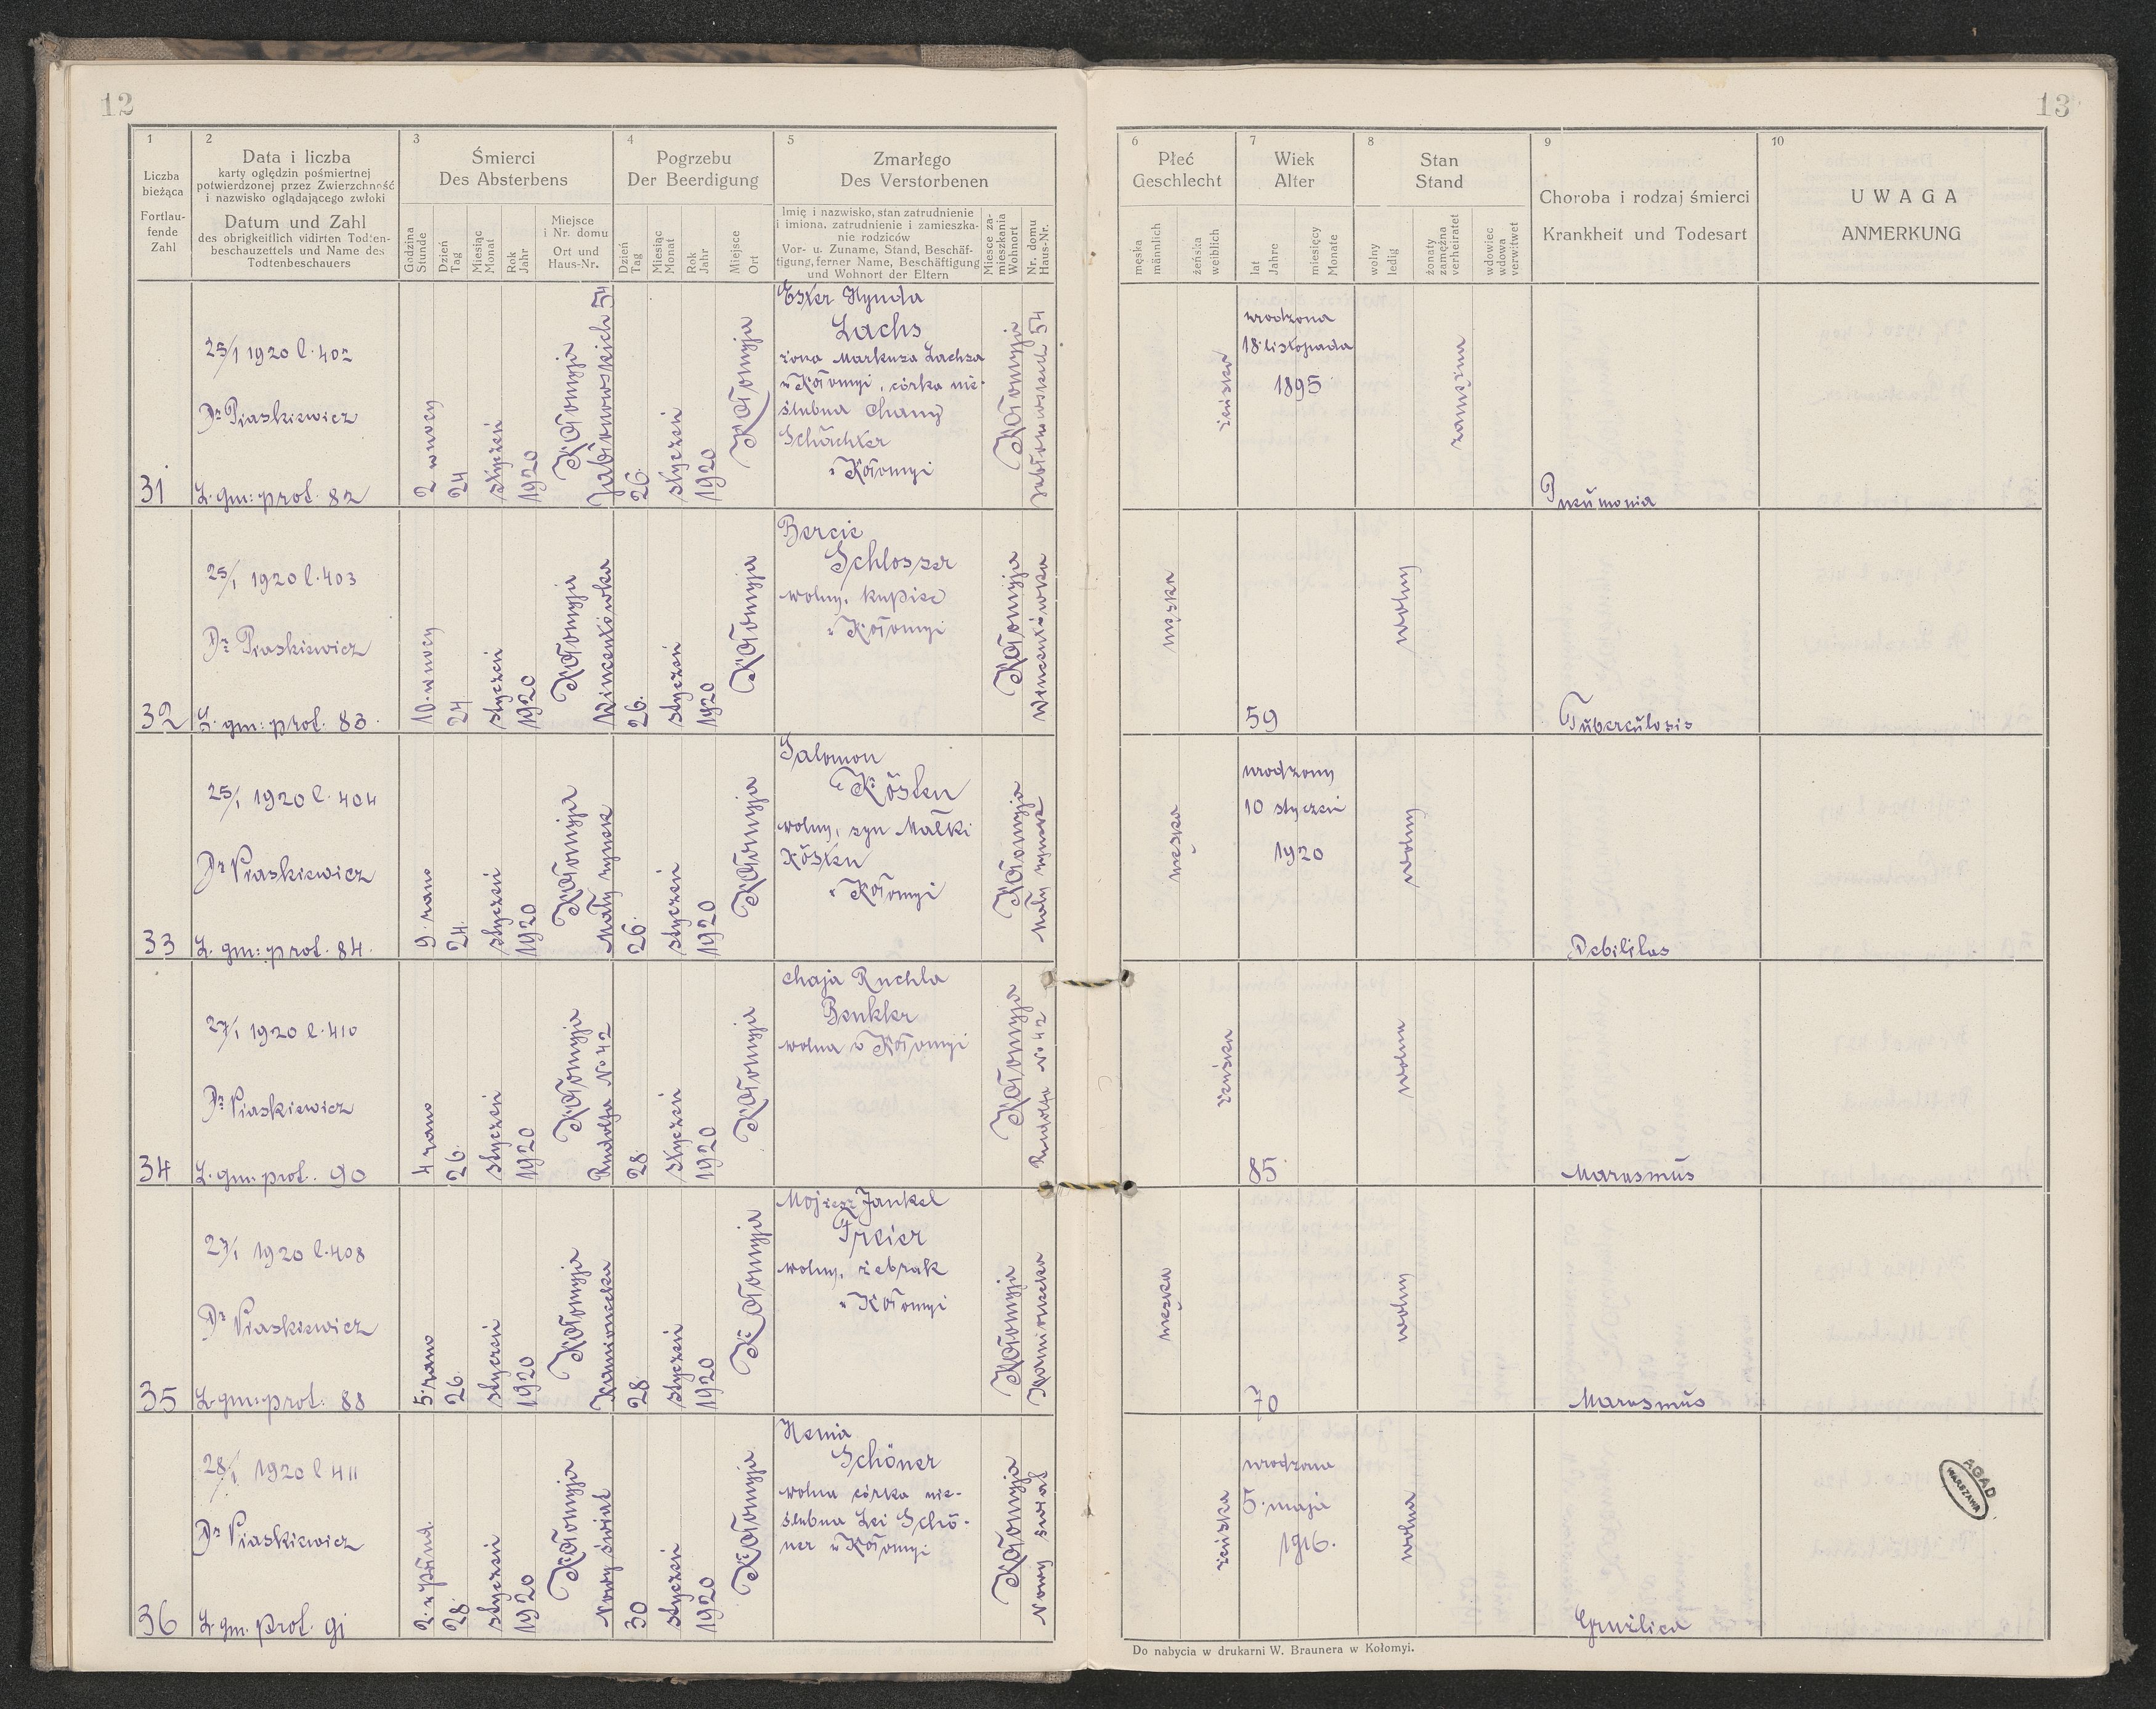 12
1
Liczba
bieżąca
Fortlau-
fende
Zahl
2
Data i liczba
karty oględzin pośmiertnej
potwierdzonej przez Zwierzchność
i nazwisko oglądającego zwłoki
Datum und Zahl
des obrigkeitlich vidirten Todten-
beschauzettels und Name des
Todtenbeschauers
3
Śmierci
Des Absterbens
Godzina
Stunde
Dzień
Tag
Miesiąc
Monat
Rok
Jahr
Miejsce
i Nr. domu
Ort und
Haus-Nr.
4
Pogrzebu
Der Beerdigung
Dzień
Tag
Miesiąc
Monat
Rok
Jahr
Miejsce
Ort
5
Zmarłego
Des Verstorbenen
Imię i nazwisko, stan zatrudnienie
i imiona. zatrudnienie i zamieszka-
nie rodziców
Vor- u. Zuname, Stand, Beschäf-
tigung, ferner Name, Beschäftigung
und Wohnort der Eltern
Miesce za-
mieszkania
Wohnort
Nr. domu
Haus-Nr.
31
25/1 1920 l. 402
Dr Piaskiewicz
L. gm: prot. 82
2 w nocy
24
styczeń
1920
Kołomyja
Jabłonowskich 54
26.
styczeń
1920
Kołomyja
Ester Hynda
Lachs
żona Markusa Lachsa
w Kołomyi, córka nie-
ślubna Chany
Schächter
w Kołomyi
Kołomyja
Jabłonowskich 54
32
25/1 1920 l. 403
Dr Piaskiewicz
L. gm: prot. 83.
10. w nocy
24
styczeń
1920
Kołomyja
Wincentówka
26.
styczeń
1920
Kołomyja
Bercie
Schlosser
wolny, kupiec
w Kołomyi
Kołomyja
Wincentówka
33
25/1 1920 l. 404
Dr Piaskiewicz
L. gm: prot. 84.
9. rano
24.
styczeń
1920
Kołomyja
Mały rynek
26.
styczeń
1920
Kołomyja
Salomon
Kösten
wolny, syn Małki
Kösten
w Kołomyi
Kołomyja
Mały rynek
34
27/1 1920 l. 410
Dr Piaskiewicz
L. gm. prot. 90
4 rano
26.
styczeń
1920
Kołomyja
Rudolfa No 42
28.
styczeń
1920
Kołomyja
Chaja Ruchla
Benkler
wolna w Kołomyi
Kołomyja
Rudolfa No 42
35
27/1 1920 l. 408
Dr Piaskiewicz
L. gm: prot. 88
5. rano
26.
styczeń
1920
Kołomyja
Kamionecka
28.
styczeń
1920
Kołomyja
Mojżesz Jankel
Freier
wolny, żebrak
w Kołomyi
Kołomyja
Kamionecka
36
28/1 1920 l 411
Dr Piaskiewicz
L. gm. prot. 91
28.
styczeń
1920
Kołomyja
Nowy świat
30
styczeń
1920
Kołomyja
Henia
Schöner
wolna córka nie-
ślubna Lei Schö-
ner w Kołomyi
Kołomyja
Nowy świat
13
6
Płeć
Geschlecht
męska
männlich
żeńska
weiblich
7
Wiek
Alter
lat
Jahre
miesięcy
Monate
8
Stan
Stand
wolny
ledig
żonaty
zamężna
verheiratet
wdowiec
wdowa
verwitwet
9
Choroba i rodzaj śmierci
Krankheit und Todesart
10
UWAGA
ANMERKUNG
żeńska
urodzona
18 listopada
1895
zamężna
Pneumonia
męska
59
wolny
Tuberculosis
męska
urodzony
10 styczeń
1920
wolny
Debilitas
żeńska
85
wolna
Marasmus
męska
70
wolny
Marasmus
żeńska
urodzona
5. maja
1916.
wolna
Gruźlica
AGAD
WARSZAWA
Do nabycia w drukarni W. Braunera w Kołomyi.